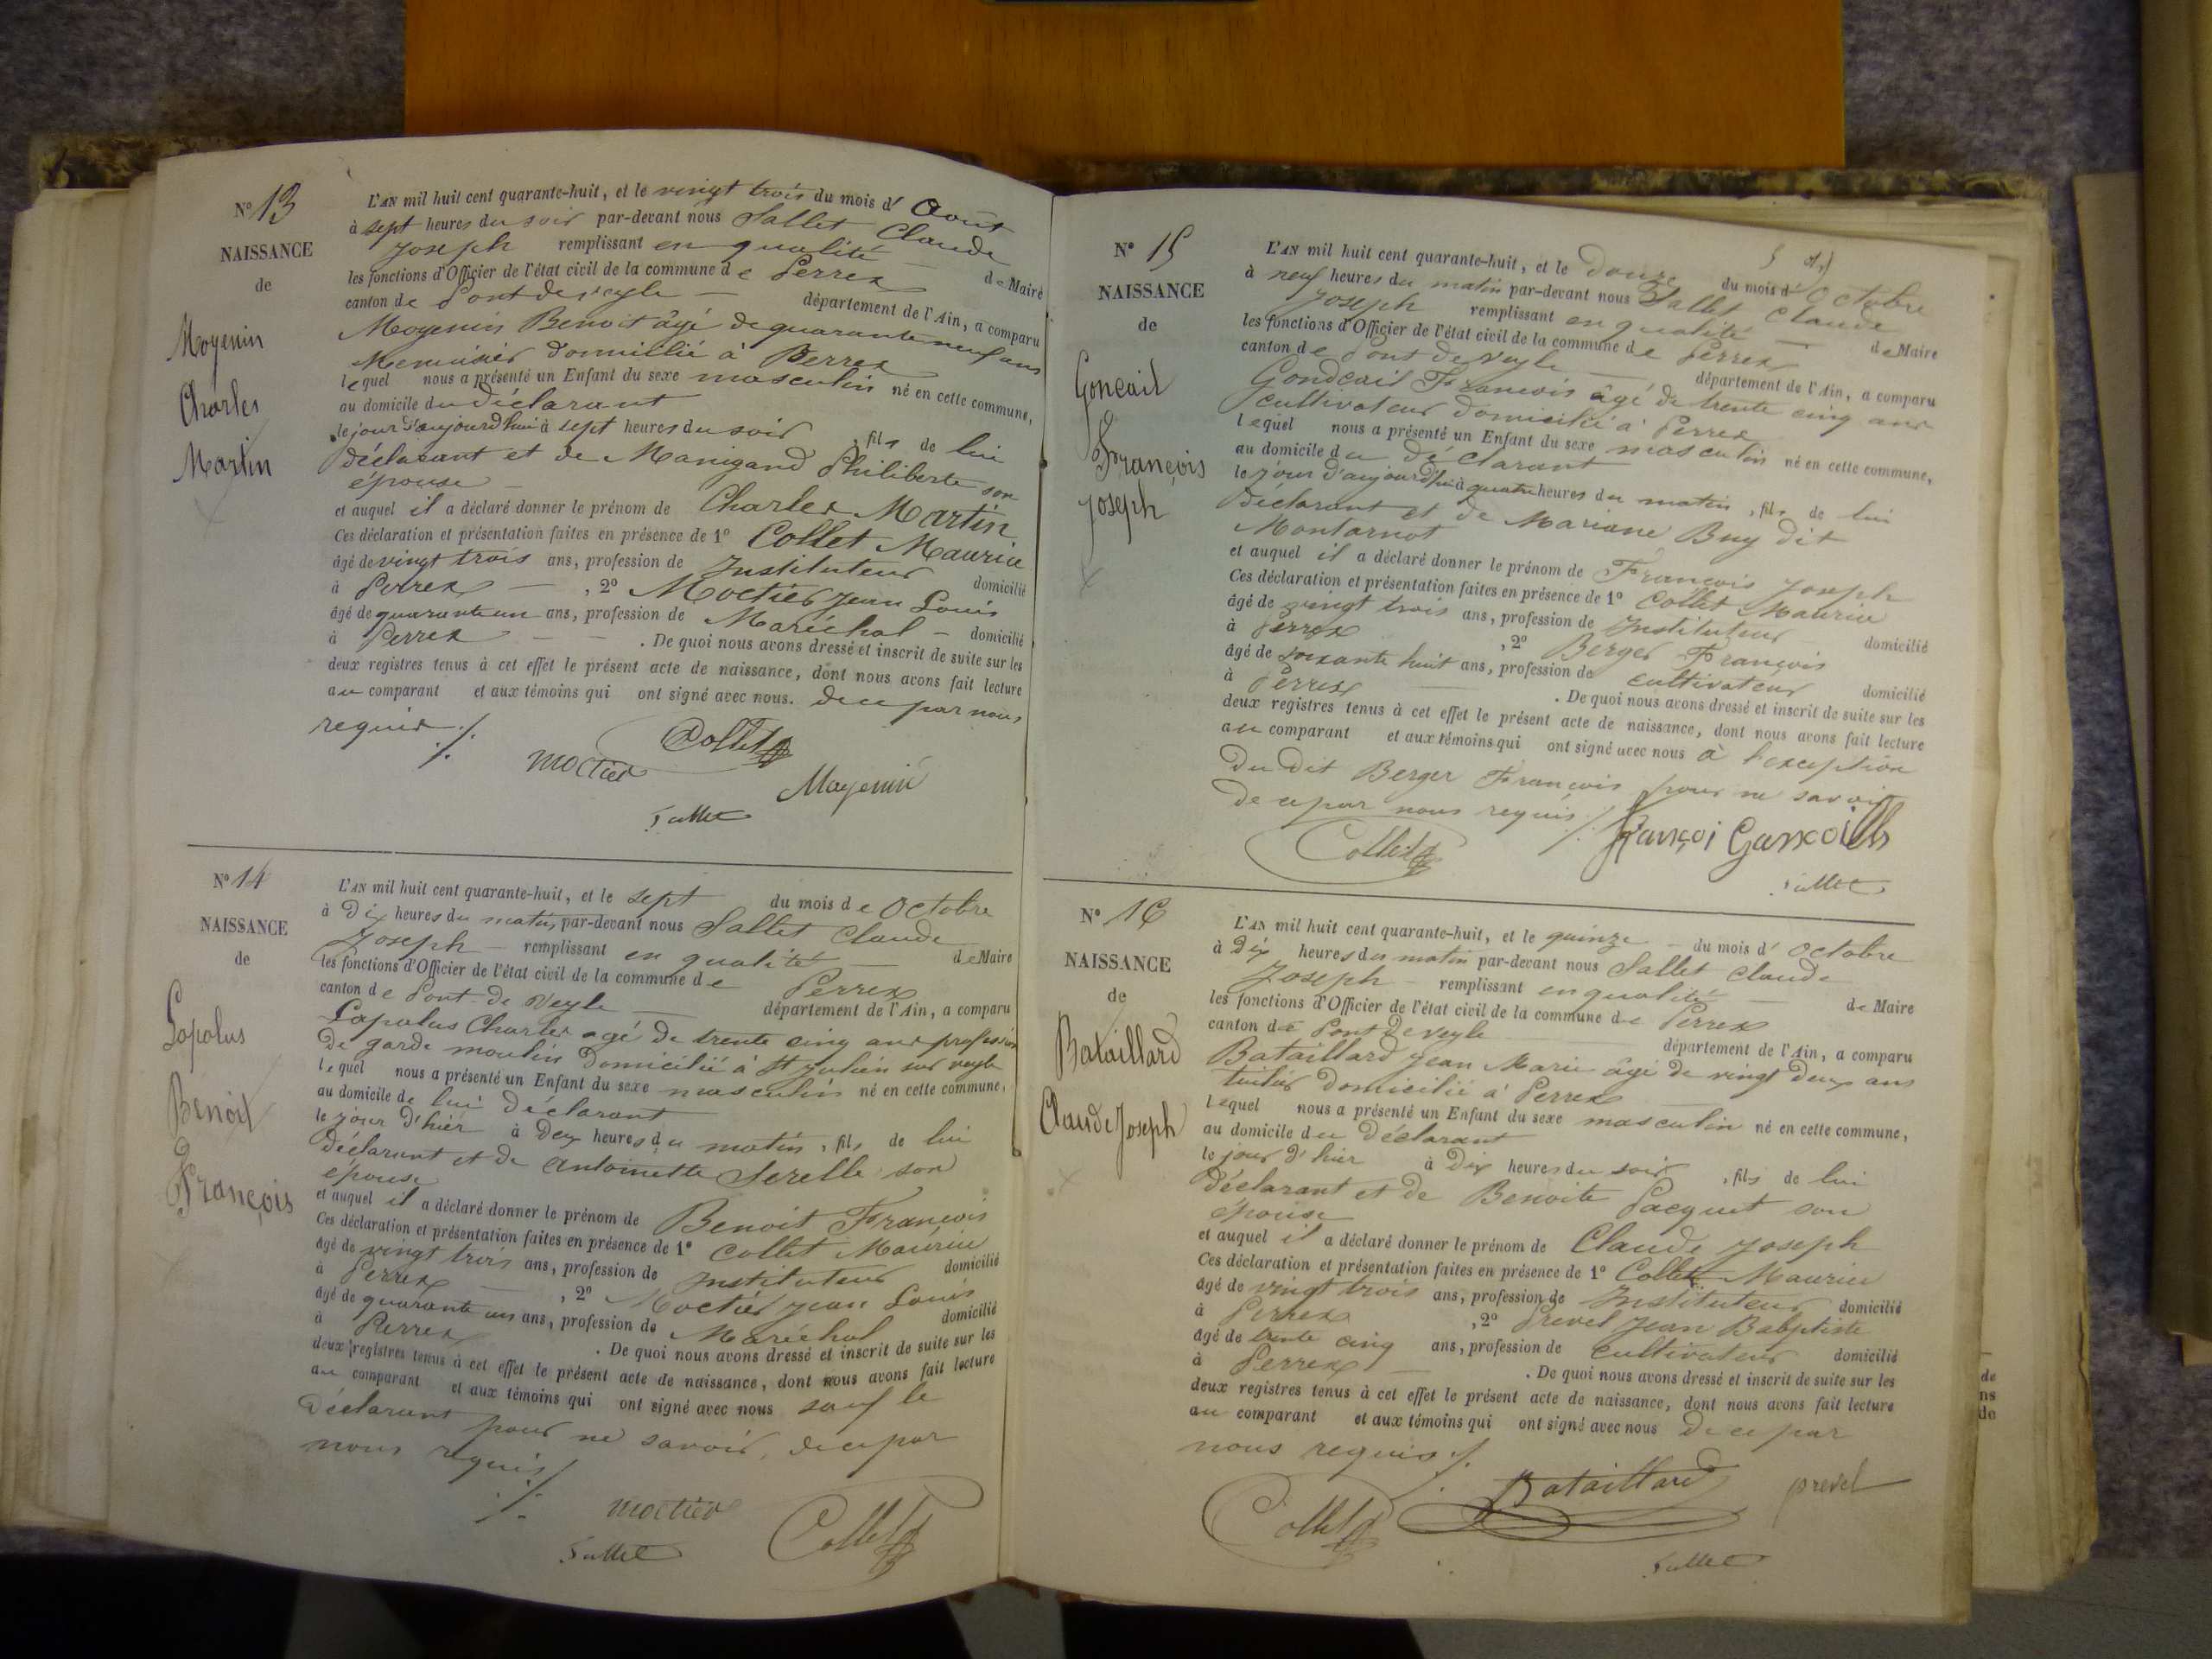 N° 13
NAISSANCE
de
Moyenin
Charles
Martin
L'AN mil huit cent quarante-huit, et le vingt trois du mois d' Août
à sept heures du soir par-devant nous Sallet Claude
Joseph remplissant en qualité de Maire
les fonctions d'Officier de l'état civil de la commune de Perrex
canton de Pont de veyle département de l'Ain, a comparu
Moyenin Benoit âgé de quarante neuf ans
Menuisier domicilié à Perrex
lequel nous a présenté un Enfant du sexe masculin né en cette commune,
au domicile du déclarant
le jour d'aujourd'hui à sept heures du soir, fils de lui
déclarant et de Manigand Philiberte son
épouse
et auquel il a déclaré donner le prénom de Charles Martin
Ces déclaration et présentation faites en présence de 1° Collet Maurice
âgé de vingt trois ans, profession de Instituteur domicilié
à Perrex , 2° Moctier Jean Louis
âgé de quarante un ans, profession de Maréchal domicilié
à Perrex . De quoi nous avons dressé et inscrit de suite sur les
deux registres tenus à cet effet le présent acte de naissance, dont nous avons fait lecture
au comparant et aux témoins qui ont signé avec nous. de ce par nous
requis ./.
Collet
Moctier
Moyenin
Sallet
N° 14
NAISSANCE
de
Lapalus
Benoit
François
L'AN mil huit cent quarante-huit, et le sept du mois de Octobre
à Dix heures du matin, par-devant nous Sallet Claude
Joseph remplissant en qualité de Maire
les fonctions d'Officier de l'état civil de la commune de Perrex
canton de Pont de Veyle département de l'Ain, a comparu
Lapalus Charles agé de trente cinq ans profession
de garde moulin domicilié à St Julien sur veyle
lequel nous a présenté un Enfant du sexe masculin né en cette commune,
au domicile de lui déclarant
le jour d'hier à Deux heures du matin, fils de lui
déclarant et de Antoinette Serelle son
épouse
et auquel il a déclaré donner le prénom de Benoit François
Ces déclaration et présentation faites en présence de 1° Collet Maurice
âgé de vingt trois ans, profession de Instituteur domicilié
à Perrex , 2° Moctier Jean Louis
âgé de quarante un ans, profession de Maréchal domicilié
à Perrex . De quoi nous avons dressé et inscrit de suite sur les
deux registres tenus à cet effet le présent acte de naissance, dont nous avons fait lecture
au comparant et aux témoins qui ont signé avec nous sauf le
déclarant pour ne savoir, de ce par
nous requis ./.
Moctier
Collet
Sallet
N° 15
NAISSANCE
de
Goncail
François
Joseph
L'AN mil huit cent quarante-huit, et le douze du mois d' Octobre
à neuf heures du matin par-devant nous Sallet Claude
Joseph remplissant en qualité de Maire
les fonctions d'Officier de l'état civil de la commune de Perrex
canton de Pont de Veyle département de l'Ain, a comparu
Gondcail François âgé de trente cinq ans
cultivateur domicilié à Perrex
lequel nous a présenté un Enfant du sexe masculin né en cette commune,
au domicile du déclarant
le jour d'aujourd'hui à quatre heures du matin, fils de lui
déclarant et de Mariane Buy dit
Montarnot
et auquel il a déclaré donner le prénom de François Joseph
Ces déclaration et présentation faites en présence de 1° Collet Maurice
âgé de vingt trois ans, profession de Instituteur domicilié
à Perrex , 2° Berger François
âgé de soixante huit ans, profession de cultivateur domicilié
à Perrex . De quoi nous avons dressé et inscrit de suite sur les
deux registres tenus à cet effet le présent acte de naissance, dont nous avons fait lecture
au comparant et aux témoins qui ont signé avec nous à l'exception
du dit Berger François pour ne savoir
de ce par nous requis ./.
Françoi Gancoills
Collet
Sallet
N° 16
NAISSANCE
de
Bataillard
Claude Joseph
L'AN mil huit cent quarante-huit, et le quinze du mois d' Octobre
à Dix heures du matin par-devant nous Sallet Claude
Joseph remplissant en qualité de Maire
les fonctions d'Officier de l'état civil de la commune de Perrex
canton de Pont de veyle département de l'Ain, a comparu
Bataillard Jean Marie âgé de vingt deux ans
tuilier domicilié à Perrex
lequel nous a présenté un Enfant du sexe masculin né en cette commune,
au domicile du déclarant
le jour d'hier à Dix heures du soir, fils de lui
déclarant et de Benoite Pacquet son
épouse
et auquel il a déclaré donner le prénom de Claude Joseph
Ces déclaration et présentation faites en présence de 1° Collet Maurice
âgé de vingt trois ans, profession de Instituteur domicilié
à Perrex , 2° Prevel Jean Babptiste
âgé de trente cinq ans, profession de cultivateur domicilié
à Perrex . De quoi nous avons dressé et inscrit de suite sur les
deux registres tenus à cet effet le présent acte de naissance, dont nous avons fait lecture
au comparant et aux témoins qui ont signé avec nous de ce par
nous requis ./.
Bataillard
prevel
Collet
Sallet
de
ns
de